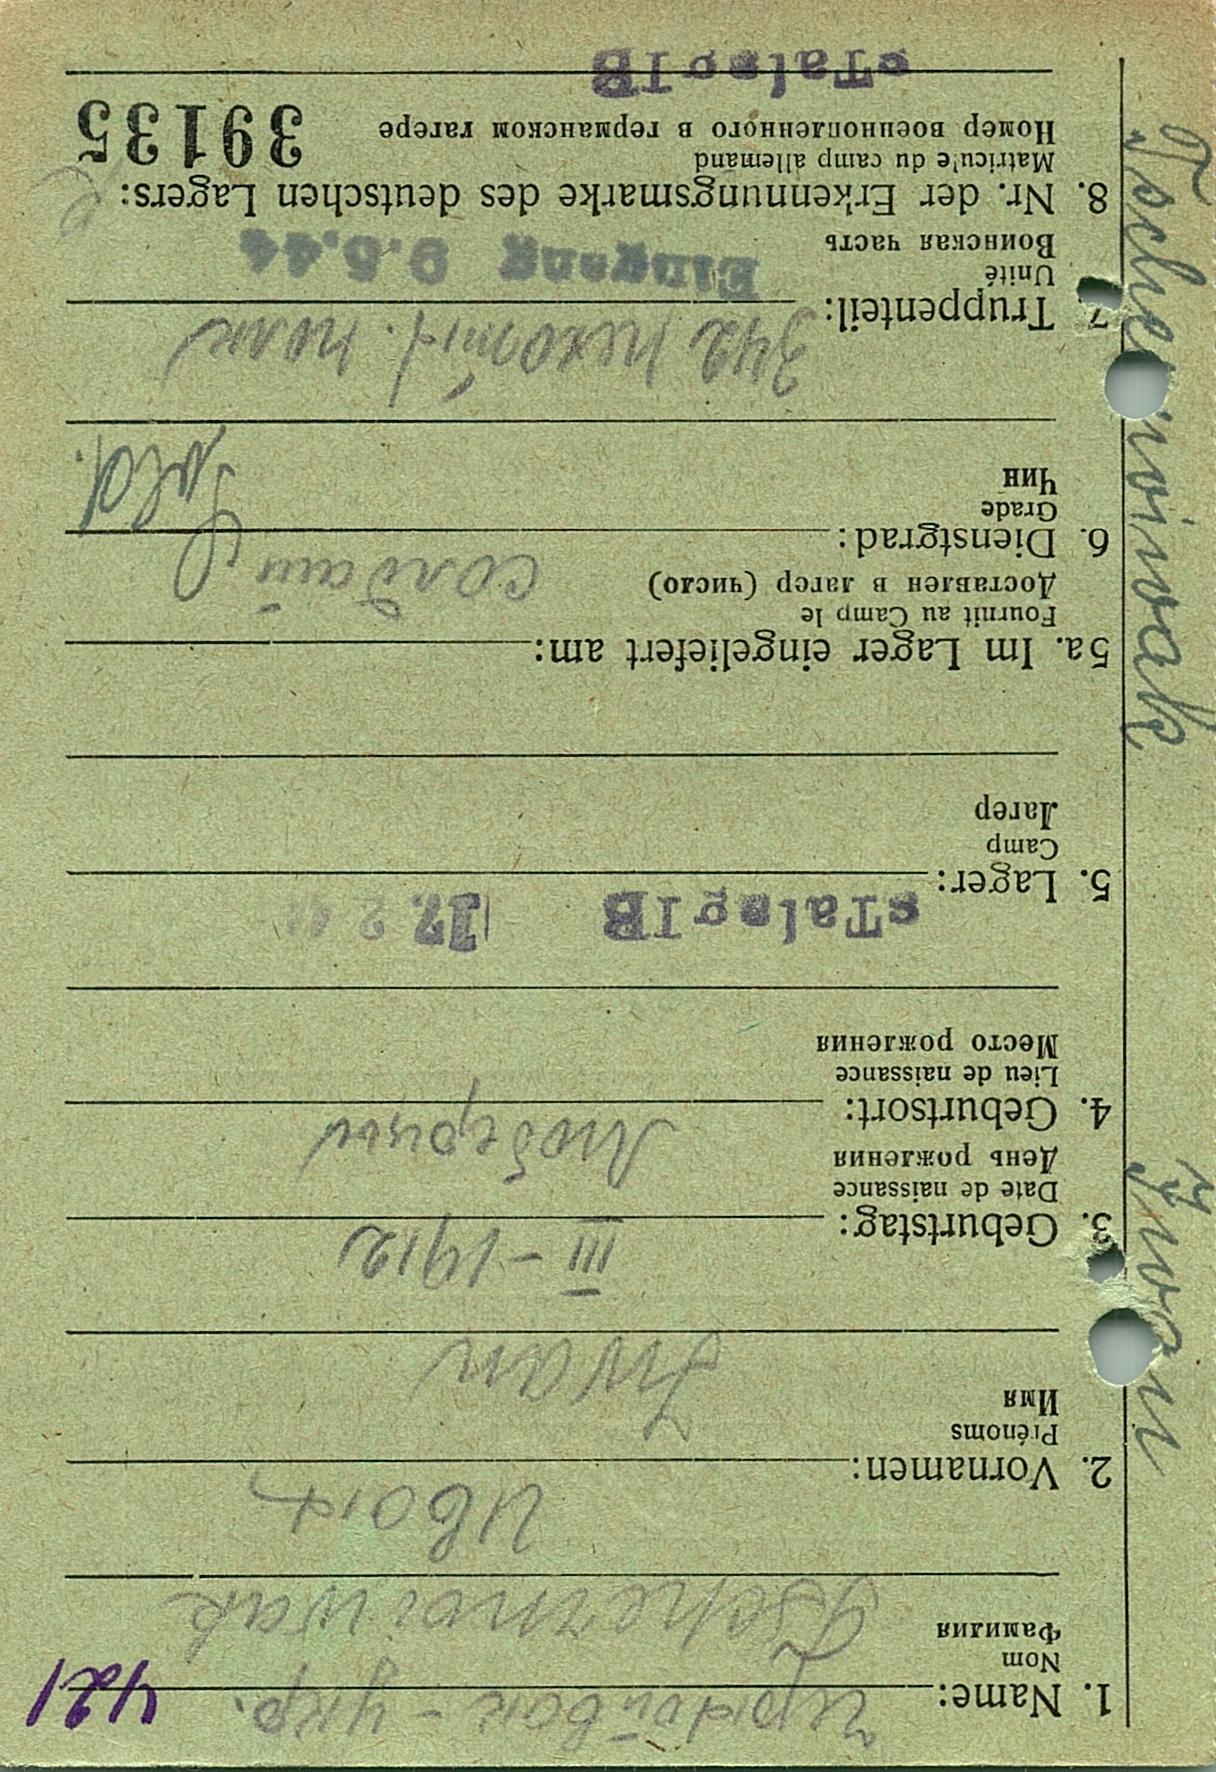 421
1. Name: Чернойван - укр.
Nom
Фамилия
Tschernoiwak
Иван
2. Vornamen:
Prénoms
Имя
Iwan
III - 1912
3. Geburtstag:
Date de naissance
День рождения
Люберцы
4. Geburtsort:
Lieu de naissance
Место рождения
sTalag IB 17. 2.
5. Lager:
Camp
Лагер
5a. Im Lager eingeliefert am:
Fournit au Camp le
Доставлен в лагер (число)
солдат
6. Dienstgrad: Sold.
Grade
Чин
342 пехотн. полк
7. Truppenteil:
Unité
Воинская часть
Eingang 9.5.44
8. Nr. der Erkennungsmarke des deutschen Lagers:
Matricule du camp allemand
Номер военнопленного в германском лагере
39135
sTalag IB
Iwan